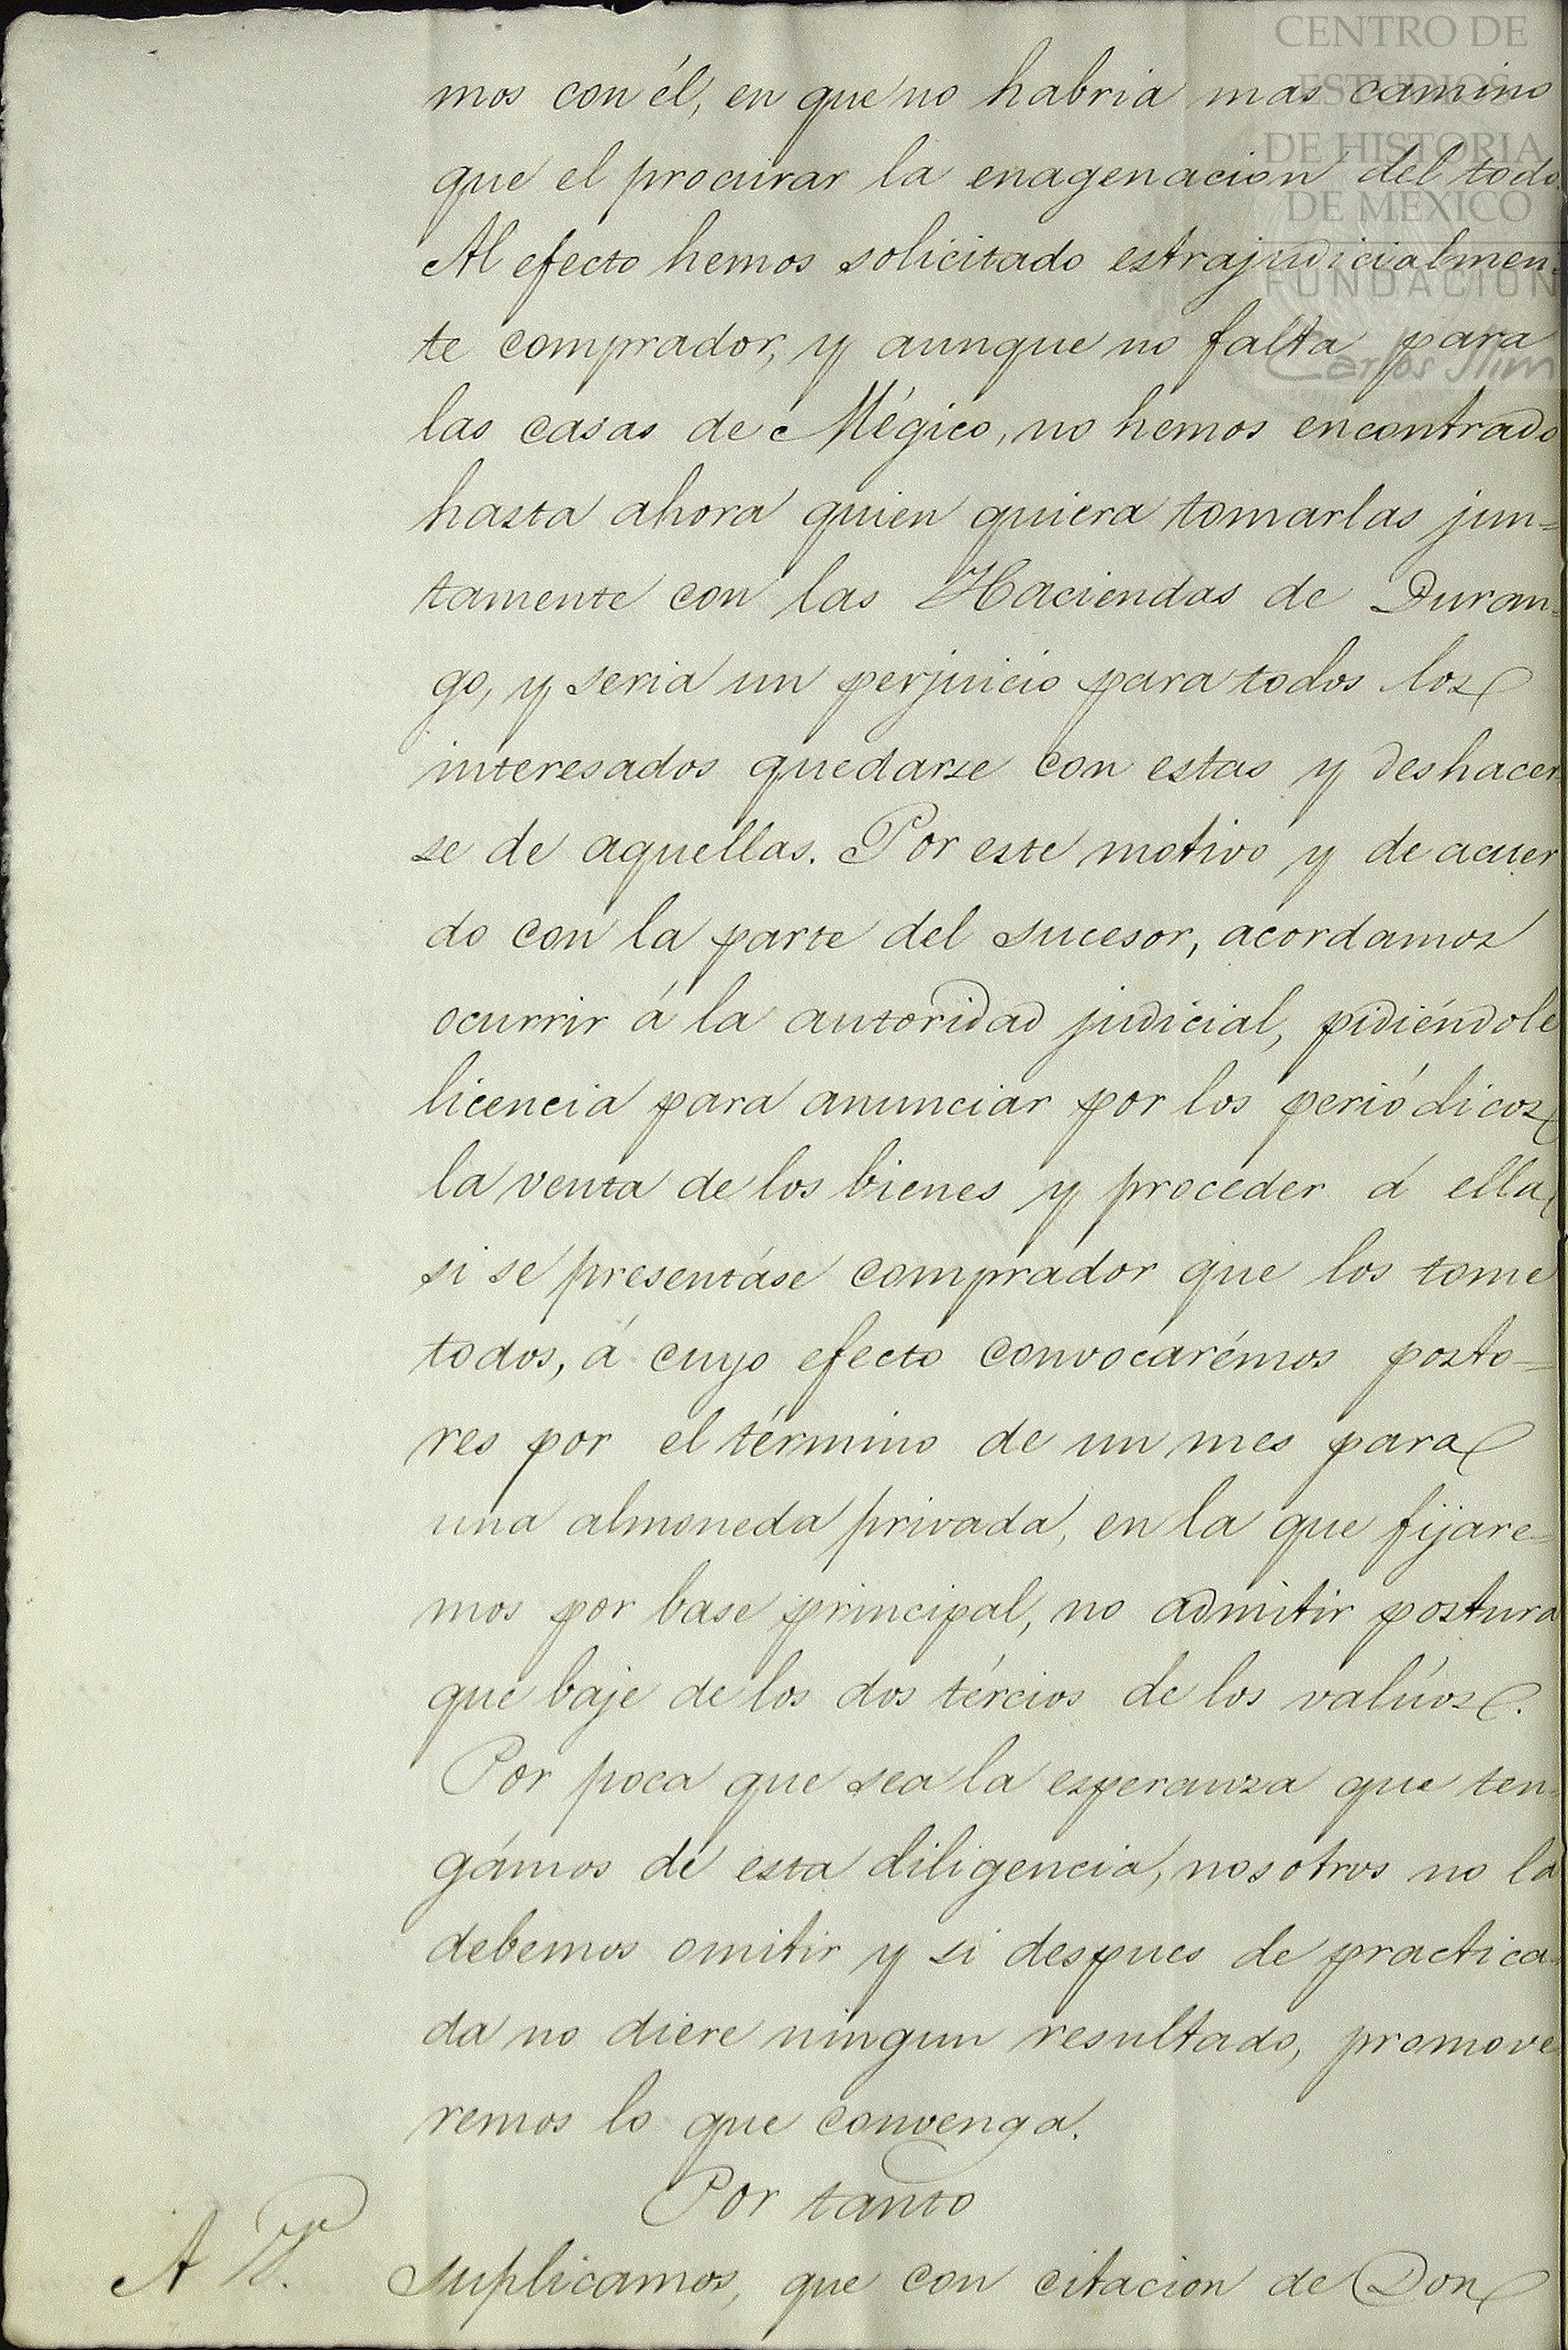 CENTRO DE
ESTUDIOS
DE HISTORIA
DE MEXICO
FUNDACION
Carlos Slim
mos con él, en que no habria mas camino
que el procurar la enagenacion del todo
Al efecto hemos solicitado estrajudicialmen-
te comprador, y aunque no falta para
las casas de Mégico, no hemos encontrado
hasta ahora quien quiera tomarlas jun=
tamente con las Haciendas de Duran=
go, y seria un perjuicio para todos los
interesados quedarse con estas y deshacer
se de aquellas. Por este motivo y de acuer
do con la parte del sucesor, acordamos
ocurrir á la autoridad judicial, pidiéndole
licencia para anunciar por los periódicos
la venta de los bienes y proceder á ella
si se presentáse comprador que los tome
todos, á cuyo efecto convocarémos posto=
res por el término de un mes para
una almoneda privada, en la que fijare=
mos por base principal, no admitir postura
que baje de los dos tércios de los valúos.
Por poca que sea la esperanza que ten-
gámos de esta diligencia, nosotros no la
debemos omitir y si despues de practica-
da no diere ningun resultado, promove
remos lo que convenga.
Por tanto
A V. suplicamos, que con citacion de Don